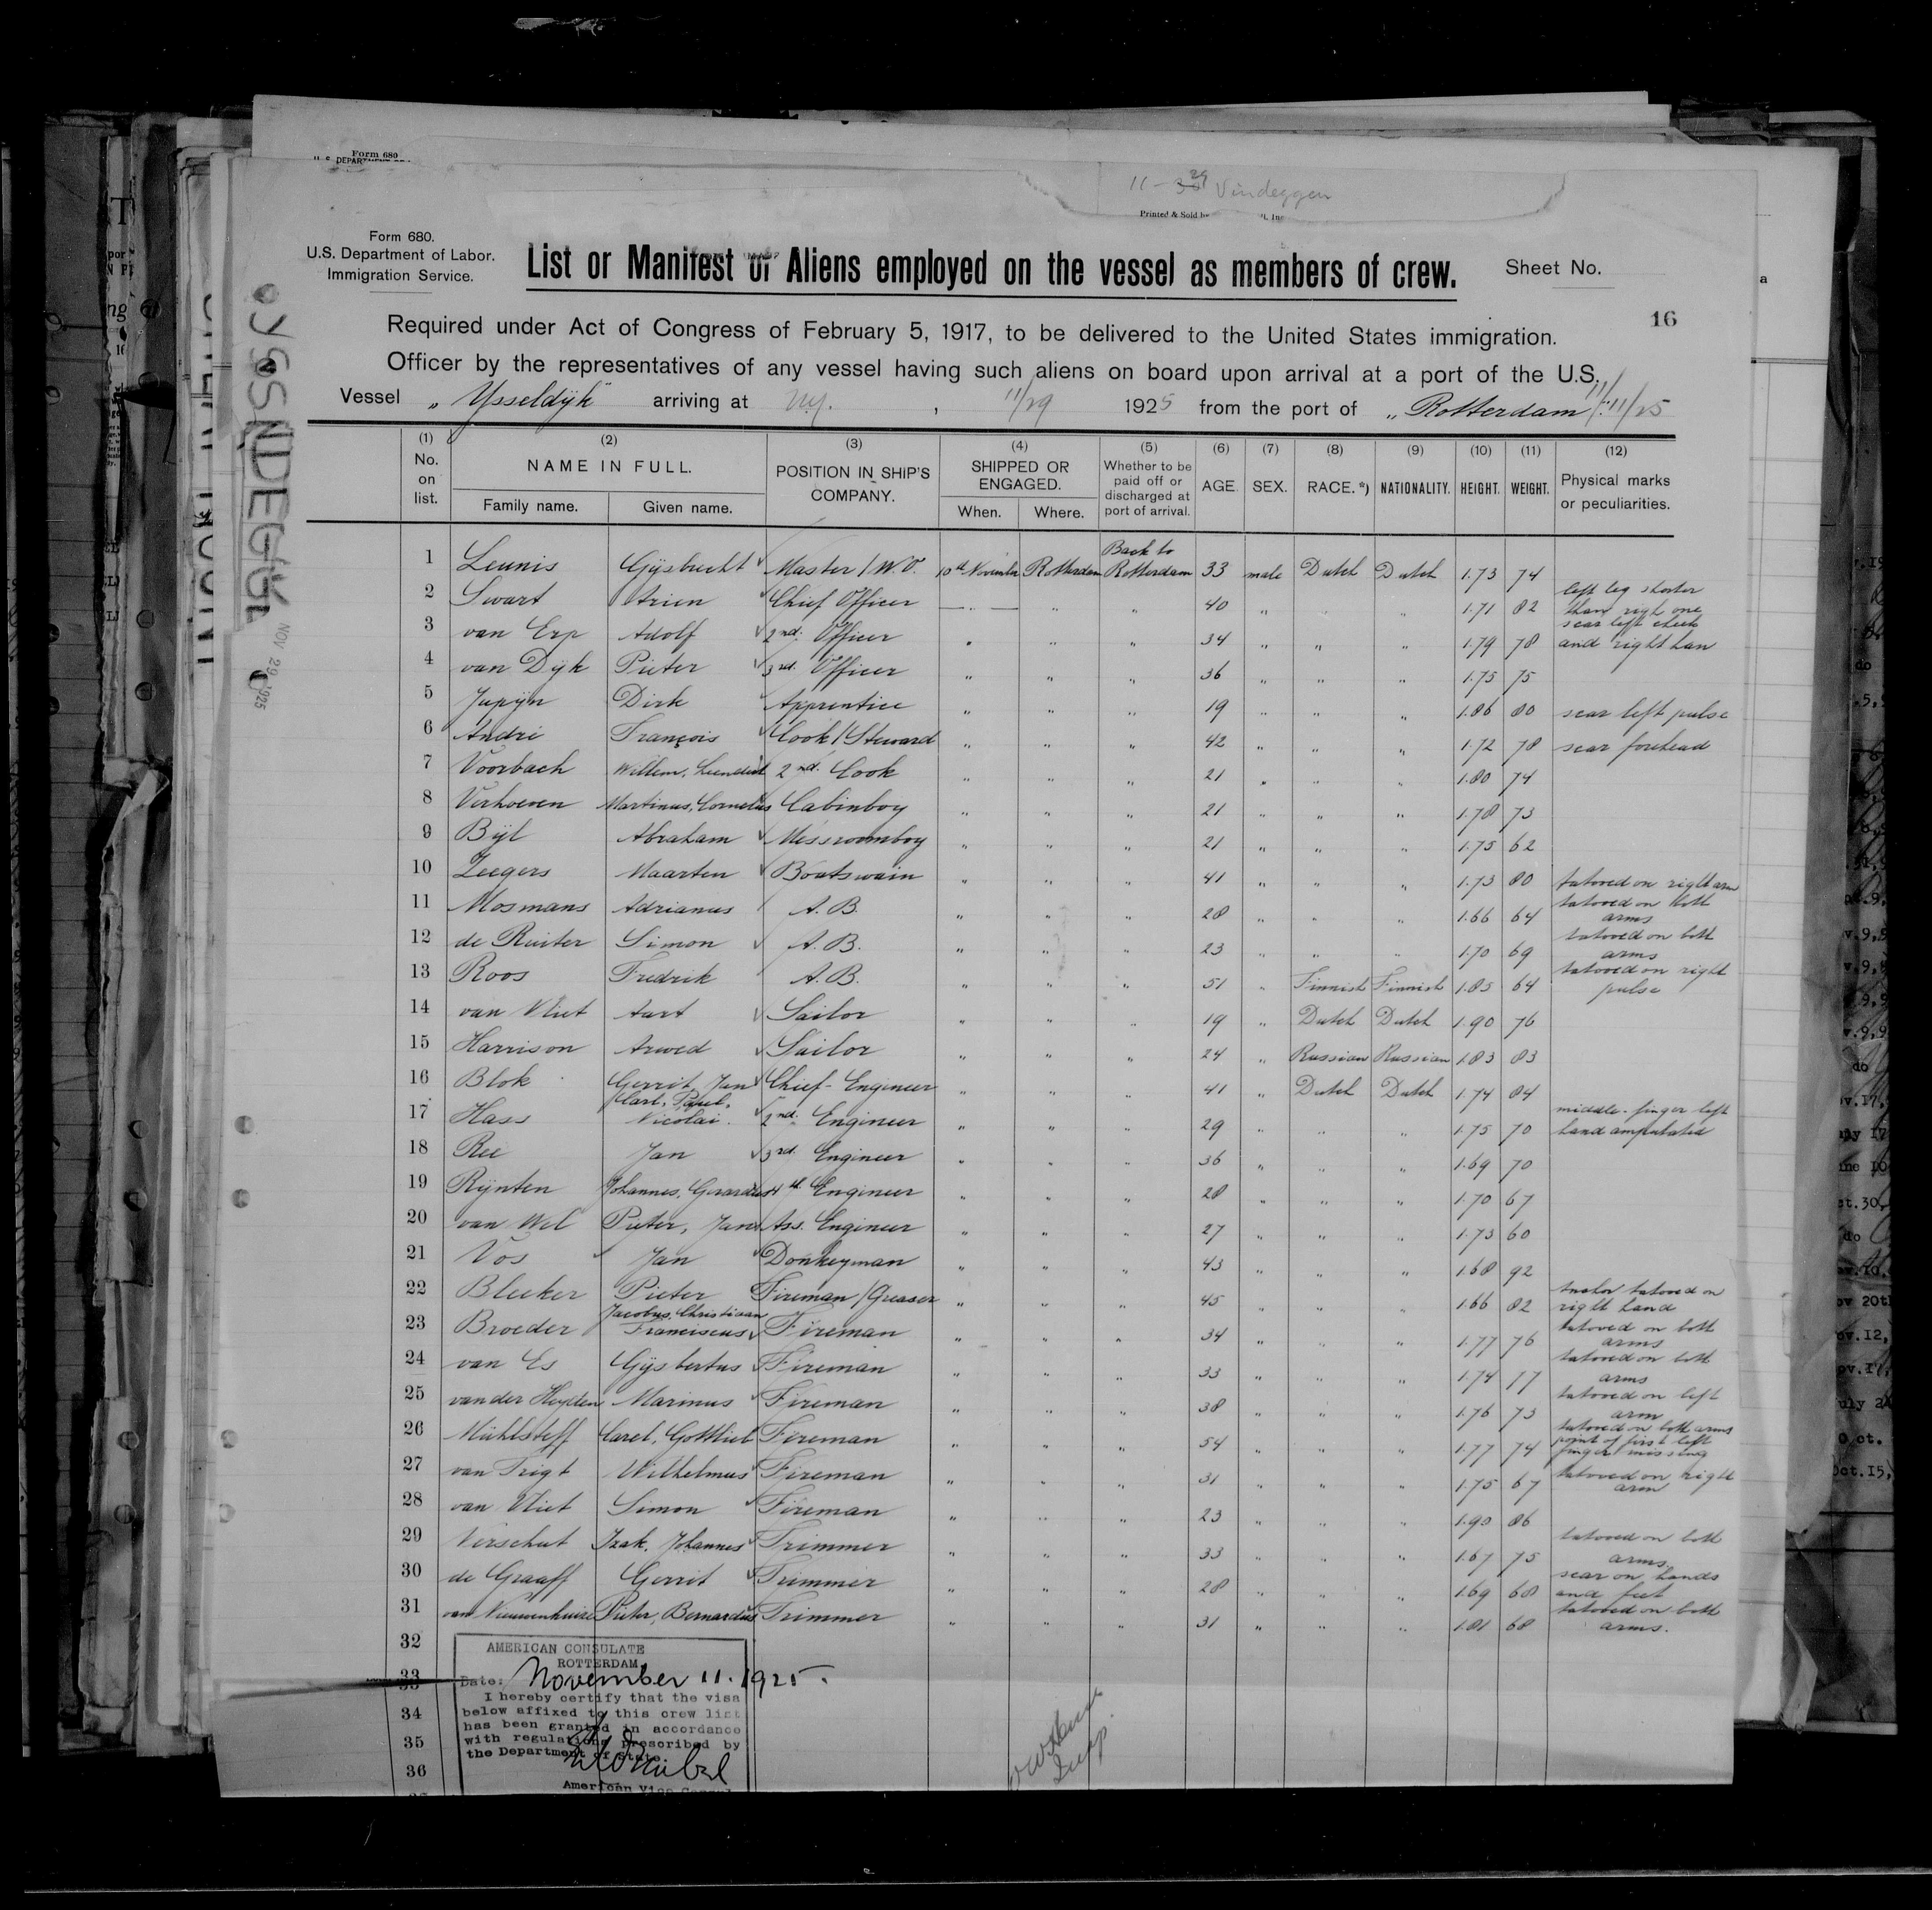 Form 680
11-29 Vindeggen
Printed & Sold by
Form 680.
U.S. Department of Labor.
Immigration Service.
List or Manifest of Aliens employed on the vessel as members of crew.
Sheet No.
16
Required under Act of Congress of February 5, 1917, to be delivered to the United States immigration.
Officer by the representatives of any vessel having such aliens on board upon arrival at a port of the U.S.
Vessel „Ysseldÿk" arriving at N.Y. , 11/29 1925 from the port of „Rotterdam" 11/11/25
YSSELDIJK NOV 29 1925
(1) No. on list. (2) NAME IN FULL. Family name. Given name. (3) POSITION IN SHIP'S COMPANY. (4) SHIPPED OR ENGAGED. When. Where. (5) Whether to be paid off or discharged at port of arrival. (6) AGE. (7) SEX. (8) RACE.*) (9) NATIONALITY. (10) HEIGHT. (11) WEIGHT. (12) Physical marks or peculiarities.
1 Leunis Gÿsbrecht Master / W.O. 10th November Rotterdam Back to Rotterdam 33 male Dutch Dutch 1.73 74
2 Swart Arien Chief Officer —„— „ „ 40 „ „ „ 1.71 82 left leg shorter than righ one
3 van Erp Adolf 2nd. Officer „ „ „ 34 „ „ „ 1.79 78 scar left cheek and right han
4 van Dÿk Pieter 3rd. Officer „ „ „ 36 „ „ „ 1.75 75
5 Jupÿn Dirk Apprentice „ „ „ 19 „ „ „ 1.86 80 scar left pulse
6 André François Cook / Steward „ „ „ 42 „ „ „ 1.72 78 scar forehead
7 Voorbach Willem, Leendert 2nd. Cook „ „ „ 21 „ „ „ 1.80 74
8 Verhoeven Martinus, Cornelius Cabinboy „ „ „ 21 „ „ „ 1.78 73
9 Bÿl Abraham Messroomboy „ „ „ 21 „ „ „ 1.75 62
10 Zeegers Maarten Boatswain „ „ „ 41 „ „ „ 1.73 80 tatooed on right arm
11 Mosmans Adrianus A.B. „ „ „ 28 „ „ „ 1.66 64 tatooed on both arms
12 de Ruiter Simon A.B. „ „ „ 23 „ „ „ 1.70 69 tatooed on both arms
13 Roos Fredrik A.B. „ „ „ 51 „ Finnish Finnish 1.85 64 tatooed on right pulse
14 van Vliet Aart Sailor „ „ „ 19 „ Dutch Dutch 1.90 76
15 Harrison Arwed Sailor „ „ „ 24 „ Russian Russian 1.83 83
16 Blok Gerrit, Jan Chief-Engineer „ „ „ 41 „ Dutch Dutch 1.74 84
17 Hass Carl, Paul, Nicolai. 2nd. Engineer „ „ „ 29 „ „ „ 1.75 70 middle-finger left hand amputated
18 Ree Jan 3rd. Engineer „ „ „ 36 „ „ „ 1.69 70
19 Rÿnten Johannes, Gerardus 4th. Engineer „ „ „ 28 „ „ „ 1.70 67
20 van Wel Pieter, Jan Ass. Engineer „ „ „ 27 „ „ „ 1.73 60
21 Vos Jan Donkeyman „ „ „ 43 „ „ „ 1.68 92
22 Bleeker Pieter Fireman / Greaser „ „ „ 45 „ „ „ 1.66 82 anchor tatooed on right hand
23 Broeder Jacobus, Christiaan Franciscus Fireman „ „ „ 34 „ „ „ 1.77 76 tatooed on both arms
24 van Es Gÿsbertus Fireman „ „ „ 33 „ „ „ 1.74 77 tatooed on both arms
25 van der Heyden Marinus Fireman „ „ „ 38 „ „ „ 1.76 73 tatooed on left arm
26 Mühlsteff Carel, Gottlieb Fireman „ „ „ 54 „ „ „ 1.77 74 tatooed on both arms point of first left finger missing
27 van Trigt Wilhelmus Fireman „ „ „ 31 „ „ „ 1.75 67 tatooed on right arm
28 van Vliet Simon Fireman „ „ „ 23 „ „ „ 1.90 86
29 Verschut Izak, Johannes Trimmer „ „ „ 33 „ „ „ 1.67 75 tatooed on both arms.
30 de Graaff Gerrit Trimmer „ „ „ 28 „ „ „ 1.69 68 scar on hands and feet
31 van Nieuwenhuize Pieter, Bernardus Trimmer „ „ „ 31 „ „ „ 1.81 68 tatooed on both arms.
32
33
34
35
36
AMERICAN CONSULATE
ROTTERDAM
Date: November 11. 1925.
I hereby certify that the visa
below affixed to this crew list
has been granted in accordance
with regulations prescribed by
the Department of State.
American Vice Consul
Insp.